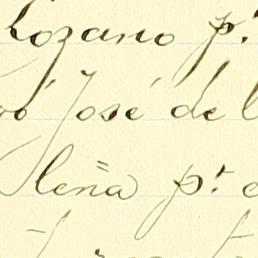 Lozano p.r
José de l
leña p.r